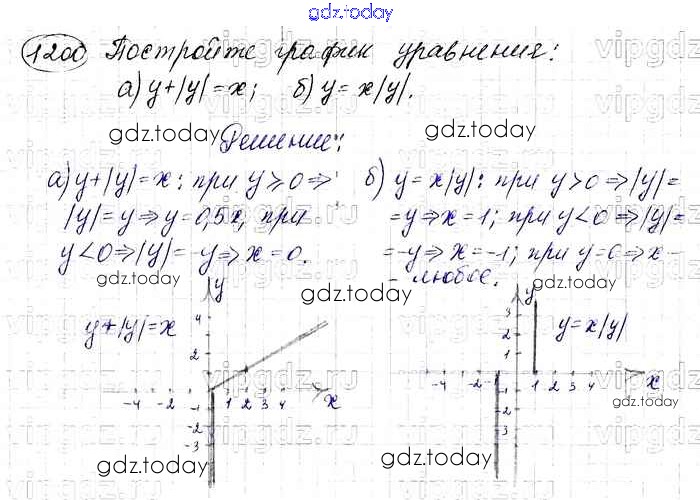 gdz.today
1200 Постройте график уравнения:
а) y+|y|=x; б) y=x|y|.
gdz.today gdz.today
Решение:
а) y+|y|=x: при y⩾0⇒
|y|=y⇒y=0,5x, при
y<0⇒|y|=-y⇒x=0.
б) y=x|y|: при y>0⇒|y|=
=y⇒x=1; при y<0⇒|y|=
=-y⇒x=-1; при y=0⇒x-
- любое.
gdz.today gdz.today gdz.today
y+|y|=x
y
4
2
-4 -2 1 2 3 4 x
-2
-3
y
3
2
1
y=x|y|
-4 -2 -1 1 2 3 4 x
-2
-3
gdz.today gdz.today
vipgdz.ru